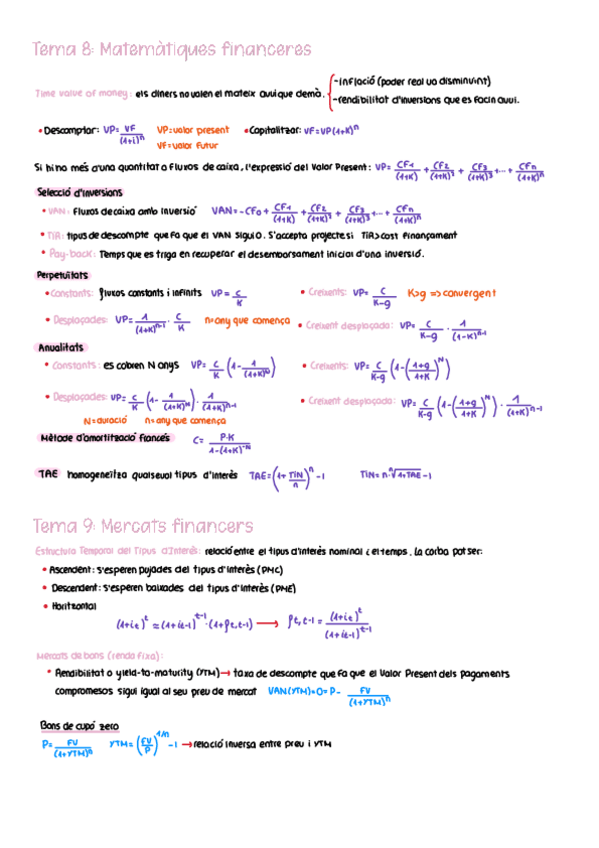 Tema 8: Matemàtiques financeres
Time value of money: els diners no valen el mateix avui que demà. { -inflació (poder real va disminuint)
-rendibilitat d'inversions que es facin avui.
• Descomptar: VP= VF/(1+i)ⁿ VP=valor present • Capitalitzar: VF=VP(1+K)ⁿ
VF=valor futur
Si hi ha més d'una quantitat o fluxos de caixa, l'expressió del Valor Present: VP= CF1/(1+K) + CF2/(1+K)² + CF3/(1+K)³ +...+ CFn/(1+K)ⁿ
Selecció d'inversions
• VAN: Fluxos de caixa amb inversió VAN=-CF0+ CF1/(1+K) + CF2/(1+K)² + CF3/(1+K)³ +...+ CFn/(1+K)ⁿ
• TIR: tipus de descompte que fa que el VAN sigui 0. S'accepta projecte si TIR>cost finançament
• Pay-back: Temps que es triga en recuperar el desemborsament inicial d'una inversió.
Perpetuïtats
• Constants: fluxos constants i infinits VP= C/K • Creixents: VP= C/(K-g) K>g => convergent
• Desplaçades: VP= 1/(1+K)ⁿ⁻¹ · C/K n=any que comença • Creixent desplaçada: VP= C/(K-g) · 1/(1-K)ⁿ⁻¹
Anualitats
• Constants: es cobren N anys VP= C/K (1- 1/(1+K)ᴺ) • Creixents: VP= C/(K-g) (1-((1+g)/(1+K))ᴺ)
• Desplaçades: VP= C/K (1- 1/(1+K)ᴺ) · 1/(1+K)ⁿ⁻¹ • Creixent desplaçada: VP= C/(K-g) (1-((1+g)/(1+K))ᴺ) · 1/(1+K)ⁿ⁻¹
N=duració n=any que comença
Mètode d'amortització francés C= P·K/(1-(1+K)⁻ᴺ)
TAE homogeneïtza qualsevol tipus d'interès TAE=(1+ TIN/n)ⁿ -1 TIN= n·ⁿ√(1+TAE) -1
Tema 9: Mercats financers
Estructura Temporal del Tipus d'Interès: relació entre el tipus d'interès nominal i el temps. La corba pot ser:
• Ascendent: s'esperen pujades del tipus d'interès (PMC)
• Descendent: s'esperen baixades del tipus d'interès (PME)
• Horitzontal
(1+it)ᵗ ≈ (1+it-1)ᵗ⁻¹ · (1+ft,t-1) → ft,t-1 = (1+it)ᵗ/(1+it-1)ᵗ⁻¹
Mercats de bons (renda fixa):
• Rendibilitat o yield-to-maturity (YTM) → taxa de descompte que fa que el Valor Present dels pagaments
compromesos sigui igual al seu preu de mercat VAN(YTM)=0=P- FV/(1+YTM)ⁿ
Bons de cupó zero
P= FV/(1+YTM)ⁿ YTM= (FV/P)^1/n -1 → relació inversa entre preu i YTM